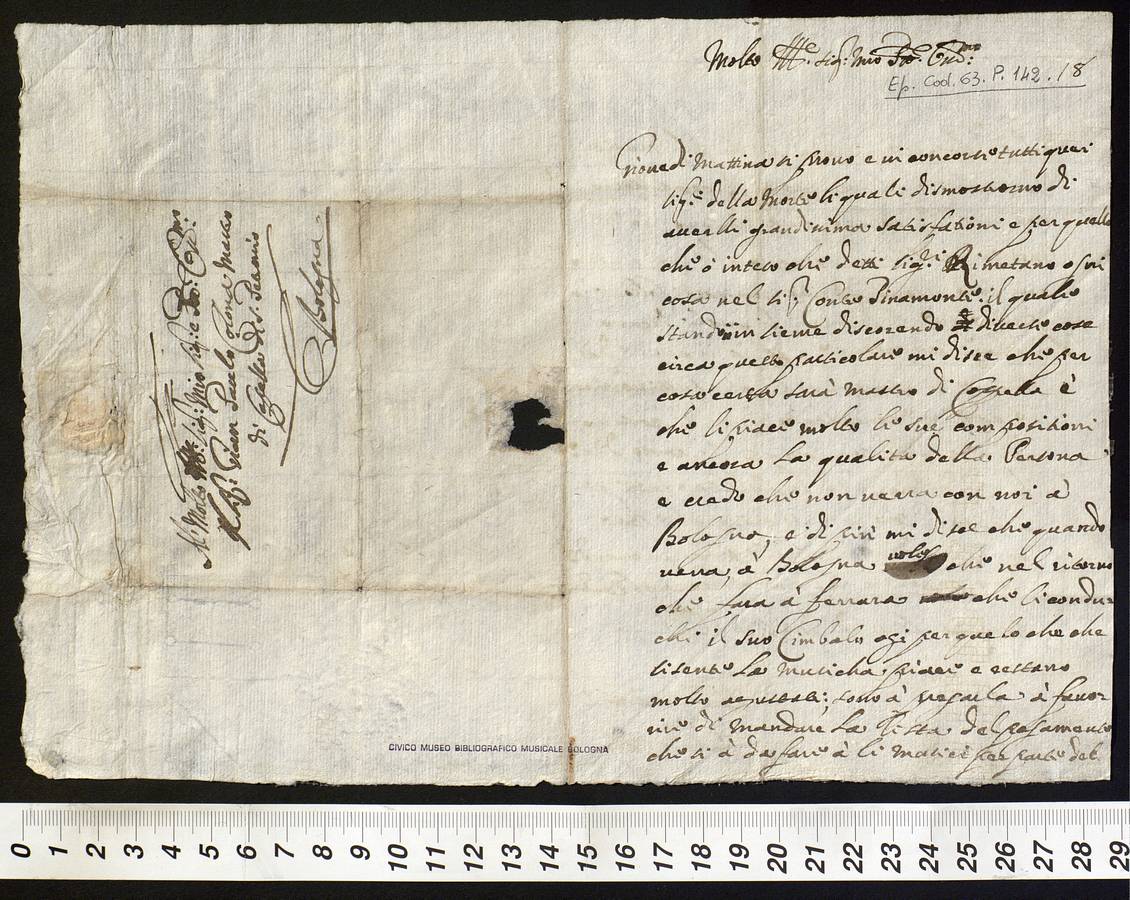 Molto Ill.e sig.r mio P.ne Col.mo
Ep. Cod. 63. P. 142. 18
Giovedi Mattina si provo e vi concorse tutti quei
sig.ri della Morte li quali dismostrorno di
averlli grandissima satisfationi e per quello
che ò inteso che detti sig.ri Rimetano ogni
cosa nel sig.r Conte Pinamonte. il quale
stando insieme discorendo di diverse cose
circa questo particolare mi disse che per
cosa certa sarà mastro di Cappella è
che li piace molto le sue compositioni
e ancora la qualita della Persona
e credo che non verra con noi à
Bologna, e di più mi disse che quando
verra à Bologna vole che nel ritorno
che fara à ferrara che li condu=
chi il suo Cimbalo ogi per quelo che che
si sente la musicha piace e restano
molto agustati; sono à pregarla à favor
irme di mandare la lista del pagamento
che si à da fare à li musici per parte del
Al Molto sig.r mio sig.r e P.ne Col.mo
Il Sig.r Giovan Paulo Colonna Mastro
di Capella di S. Petronio
Bologna
CIVICO MUSEO BIBLIOGRAFICO MUSICALE BOLOGNA
0 1 2 3 4 5 6 7 8 9 10 11 12 13 14 15 16 17 18 19 20 21 22 23 24 25 26 27 28 29